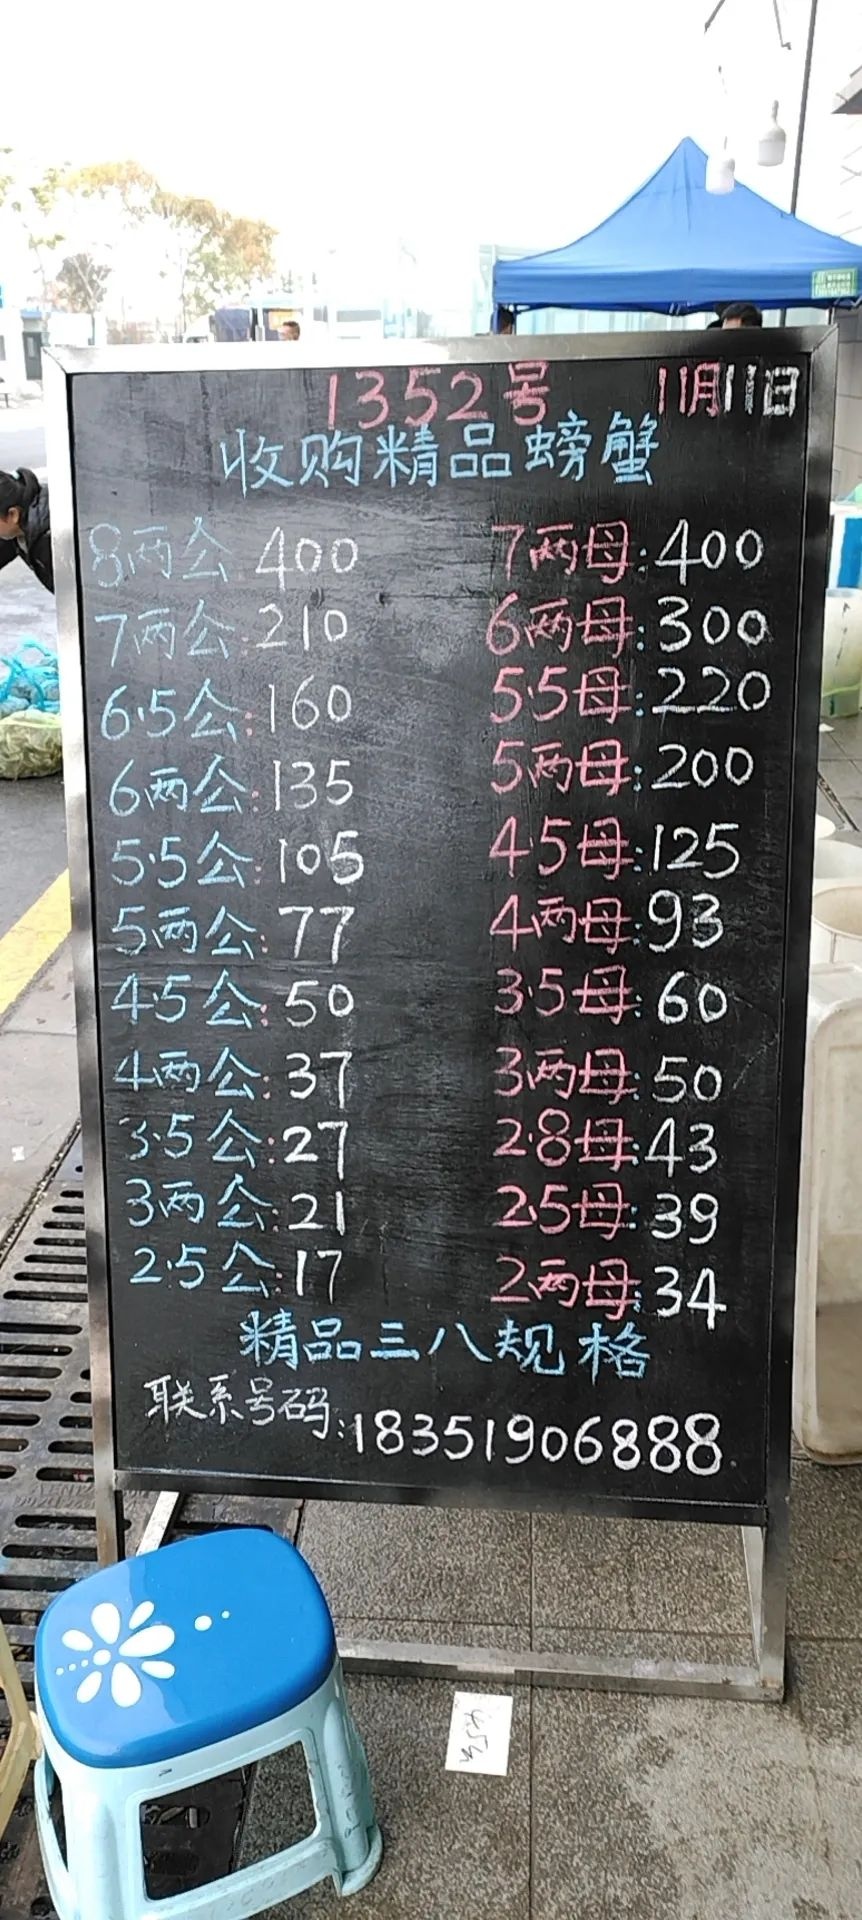 1352号 11月11日
收购精品螃蟹
8两公 400 7两母:400
7两公:210 6两母:300
6.5公:160 5.5母:220
6两公:135 5两母:200
5.5公:105 4.5母:125
5两公:77 4两母:93
4.5公:50 3.5母:60
4两公:37 3两母:50
3.5公:27 2.8母:43
3两公:21 2.5母:39
2.5公:17 2两母:34
精品三八规格
联系号码:18351906888